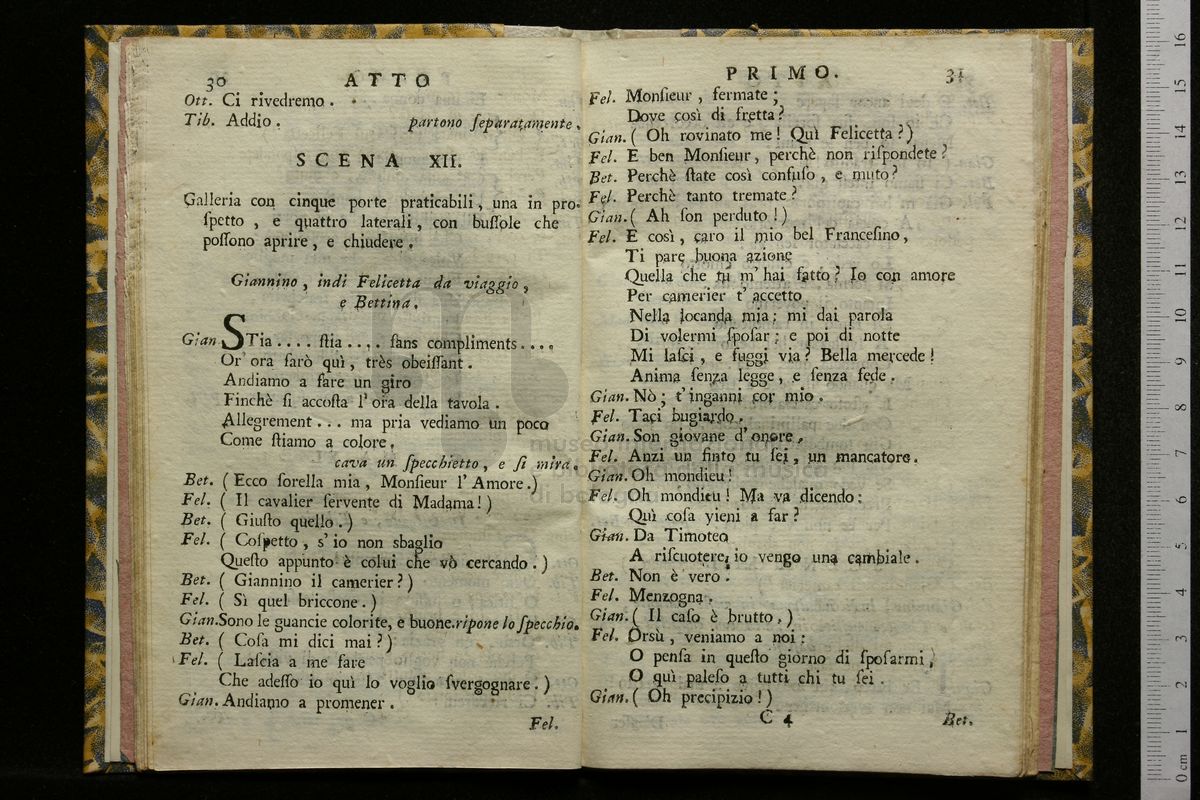 30 ATTO
Ott. Ci rivedremo.
Tib. Addio. partono ſeparatamente.
SCENA XII.
Galleria con cinque porte praticabili, una in pro-
ſpetto, e quattro laterali, con buſſole che
poſſono aprire, e chiudere.
Giannino, indi Felicetta da viaggio,
e Bettina.
Gian. STia .... ſtia .... ſans compliments ....
Or' ora ſarò quì, très obeiſſant.
Andiamo a fare un giro
Finchè ſi accoſta l'ora della tavola.
Allegrement... ma pria vediamo un poco
Come ſtiamo a colore.
cava un ſpecchietto, e ſi mira.
Bet. (Ecco ſorella mia, Monſieur l'Amore.)
Fel. (Il cavalier ſervente di Madama!)
Bet. (Giuſto quello.)
Fel. (Coſpetto, s'io non sbaglio
Queſto appunto è colui che vò cercando.)
Bet. (Giannino il camerier?)
Fel. (Sì quel briccone.)
Gian. Sono le guancie colorite, e buone. ripone lo ſpecchio.
Bet. (Coſa mi dici mai?)
Fel. (Laſcia a me fare
Che adeſſo io quì lo voglio ſvergognare.)
Gian. Andiamo a promener.
Fel.
PRIMO. 31
Fel. Monſieur, fermate;
Dove così di fretta?
Gian. (Oh rovinato me! Quì Felicetta?)
Fel. E ben Monſieur, perchè non riſpondete?
Bet. Perchè ſtate così confuſo, e muto?
Fel. Perchè tanto tremate?
Gian. (Ah ſon perduto!)
Fel. E così, caro il mio bel Franceſino,
Ti pare buona azione
Quella che tu m'hai fatto? Io con amore
Per camerier t'accetto
Nella locanda mia; mi dai parola
Di volermi ſpoſar; e poi di notte
Mi laſci, e fuggi via? Bella mercede!
Anima ſenza legge, e ſenza fede.
Gian. Nò; t'inganni cor mio.
Fel. Taci bugiardo.
Gian. Son giovane d'onore.
Fel. Anzi un finto tu ſei, un mancatore.
Gian. Oh mondieu!
Fel. Oh mondieu! Ma va dicendo:
Quì coſa vieni a far?
Gian. Da Timoteo
A riſcuotere, io vengo una cambiale.
Bet. Non è vero.
Fel. Menzogna.
Gian. (Il caſo è brutto.)
Fel. Orsù, veniamo a noi:
O penſa in queſto giorno di ſpoſarmi,
O quì paleſo a tutti chi tu ſei.
Gian. (Oh precipizio!)
C 4 Bet.
museo
della musica
di bologna
0 cm 1 2 3 4 5 6 7 8 9 10 11 12 13 14 15 16